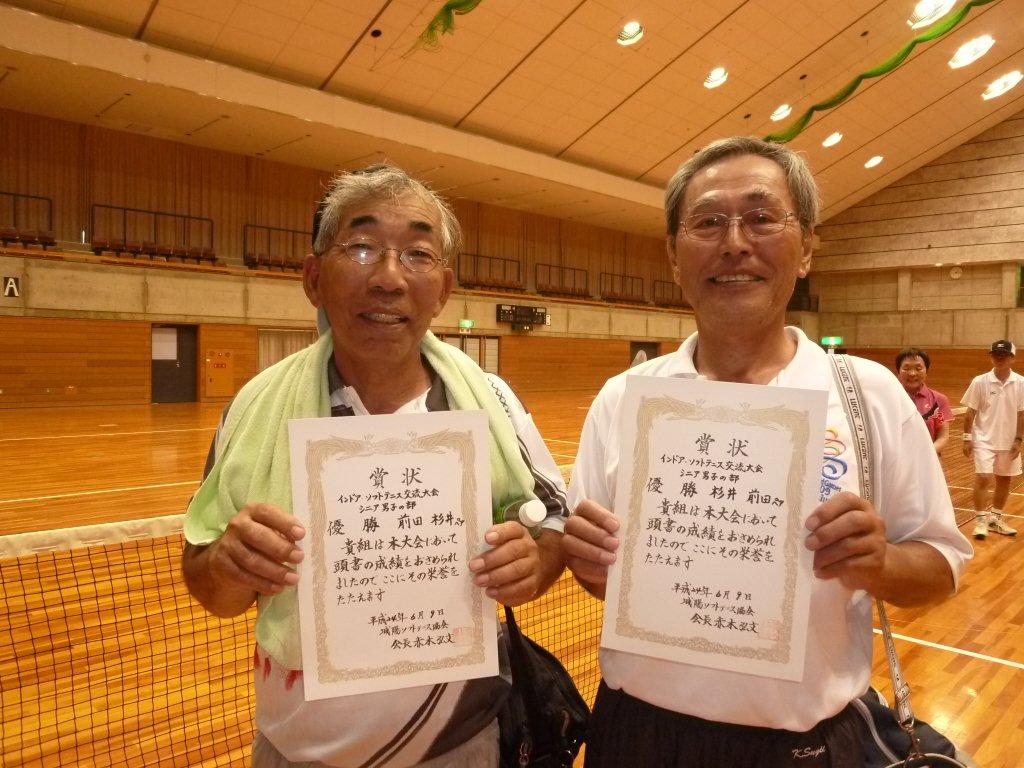 A
賞状
インドア・ソフトテニス交流大会
シニア男子の部
優 勝 前田 杉井ペア
貴組は本大会において
頭書の成績をおさめられ
ましたので ここにその栄誉を
たたえます
平成24年6月9日
城陽ソフトテニス協会
会長 赤木弘文
賞状
インドア・ソフトテニス交流大会
シニア男子の部
優 勝 杉井 前田ペア
貴組は本大会において
頭書の成績をおさめられ
ましたので ここにその栄誉を
たたえます
平成24年6月9日
城陽ソフトテニス協会
会長 赤木弘文
LUCENT
K.Sugii